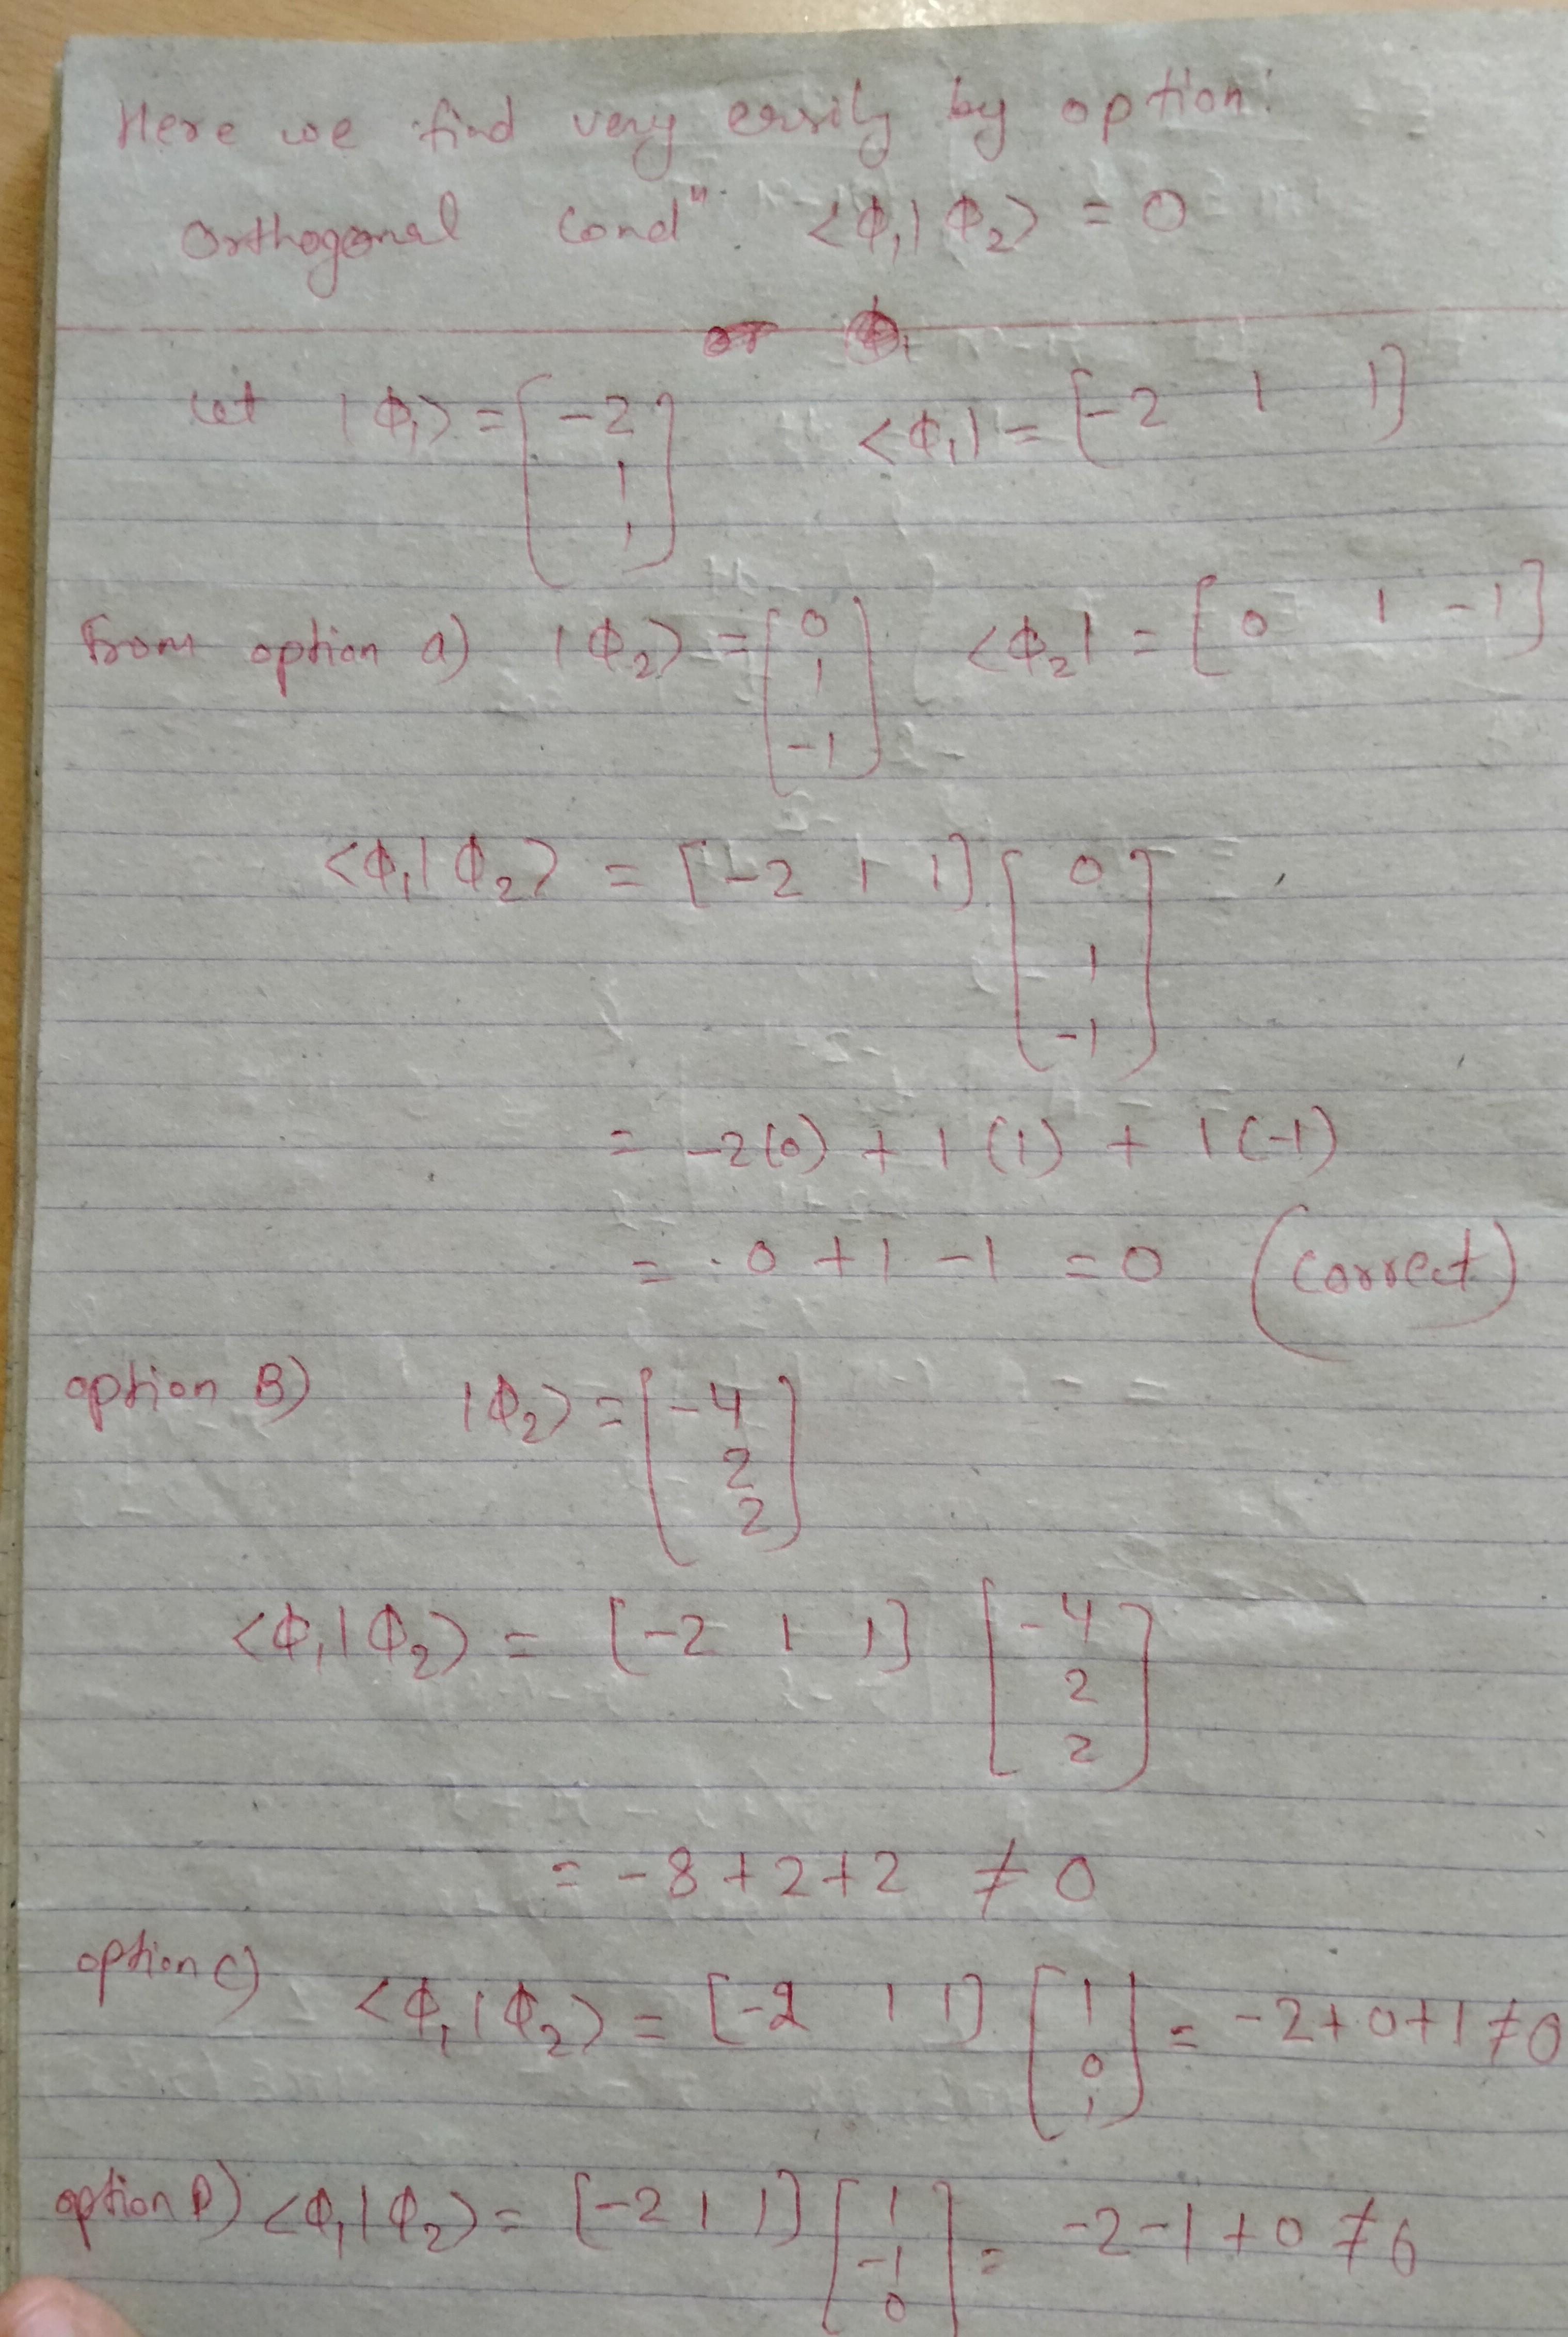 Here we find very easily by option:
Orthogonal Condⁿ: <Φ₁|Φ₂> = 0
or Φ₁
Let |Φ₁> = [-2 <Φ₁| = [-2 1 1]
1
1]
From option a) |Φ₂> = [0 <Φ₂| = [0 1 -1]
1
-1]
<Φ₁|Φ₂> = [-2 1 1] [0
1
-1]
= -2(0) + 1(1) + 1(-1)
= 0 + 1 - 1 = 0 (Correct)
option B) |Φ₂> = [-4
2
2]
<Φ₁|Φ₂> = [-2 1 1] [-4
2
2]
= -8+2+2 ≠ 0
option C) <Φ₁|Φ₂> = [-2 1 1] [1
0
1] = -2+0+1 ≠ 0
option D) <Φ₁|Φ₂> = [-2 1 1] [1
-1
0] = -2-1+0 ≠ 0